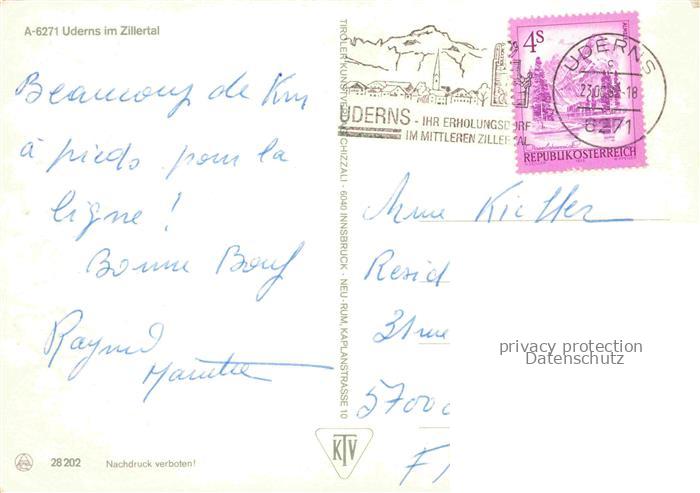 A-6271 Uderns im Zillertal
Beaucoup de Km
à pieds pour la
ligne !
Bonne Bouf
Raymond
28 202
Nachdruck verboten!
TIROLER KUNSTVERLAG CHIZZALI - 6040 INNSBRUCK - NEU-RUM, KAPLANSTRASSE 10
KTV
UDERNS - IHR ERHOLUNGSDORF
IM MITTLEREN ZILLERTAL
4S
REPUBLIK ÖSTERREICH
UDERNS
6271
Kieffer
Resid
31 rue
57000
F
privacy protection
Datenschutz